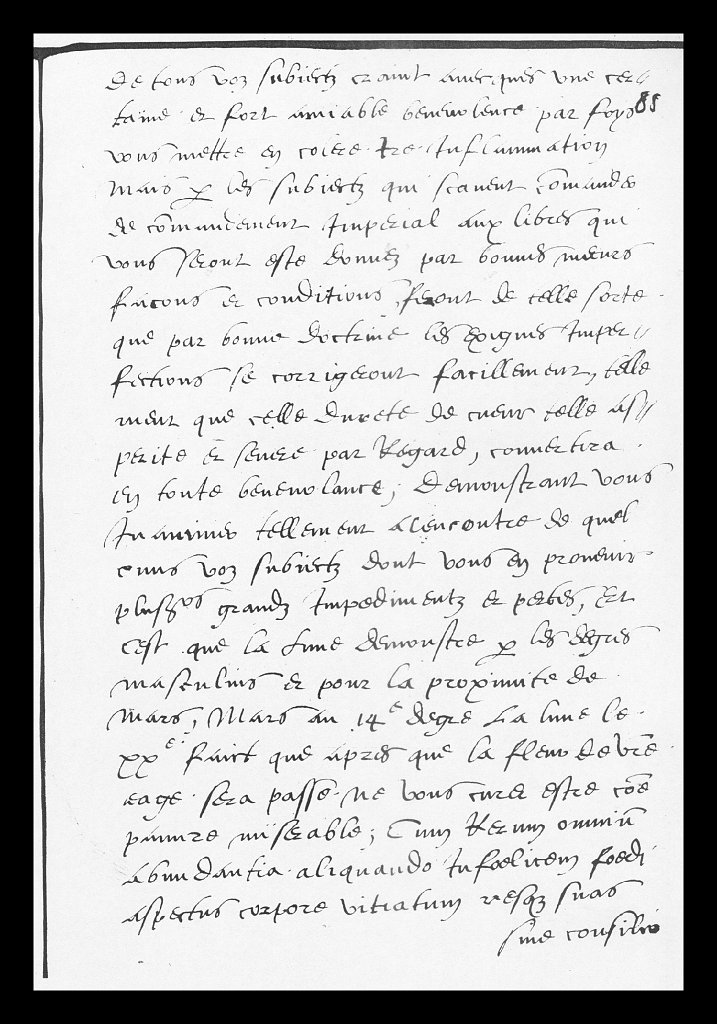 de tous voz subiectz craint avecques une cer//
85
taine et fort amiable benevolence par foys
vous mettre en colere tre Inflammation
Mais p les subiectz qui scavent comander
de comandement Imperial aux libres qui
vous seront este donnez par bonnes meurs
facons et conditions, feront de telle sorte
que par bonne doctrine les exigues Imper//
fections se corrigeront facillement, telle
ment que celle durete de cueur telle as//
perite et severe par Regard, convertira
en toute benevolance, demonstrant vous
Inanimer tellement alencontre de quel
cuns voz subiectz dont vous en provenir
plusrs grandz Impedimentz et pertes, Et
cest que la Lune demonstre p les degres
masculins et pour la proximite de
Mars, Mars au 14e degre La lune le
xxe faict que apres que la fleur de vre
eage sera passe ne vous cures estre coe
pauvre miserable, Cum Rerum omniu
abundantia aliquando Infoelicem foedi
aspectus corpore vitiatum resq suas
sine consilio